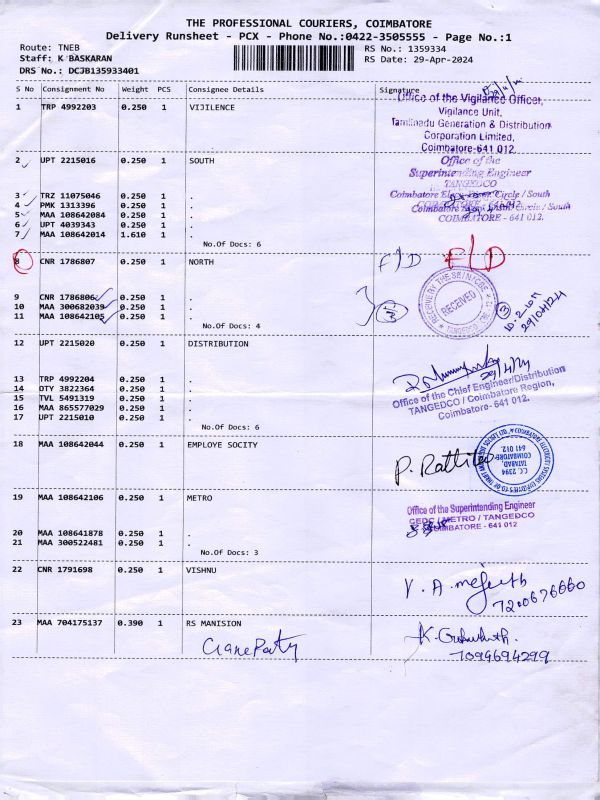 THE PROFESSIONAL COURIERS, COIMBATORE
Delivery Runsheet - PCX - Phone No.:0422-3505555 - Page No.:1
Route: TNEB RS No.: 1359334
Staff: K BASKARAN RS Date: 29-Apr-2024
DRS No.: DCJB135933401
S No Consignment No Weight PCS Consignee Details Signature
1 TRP 4992203 0.250 1 VIJILENCE
Office of the Vigilance Officer,
Vigilance Unit,
Tamilnadu Generation & Distribution
Corporation Limited,
Coimbatore-641 012.
2 UPT 2215016 0.250 1 SOUTH
Office of the
Superintending Engineer
TANGEDCO
3 TRZ 11075046 0.250 1 .
4 PMK 1313396 0.250 1 .
5 MAA 108642084 0.250 1 .
6 UPT 4039343 0.250 1 .
7 MAA 108642014 1.610 1 .
Circle / South
COIMBATORE - 641 012.
No.Of Docs: 6
8 CNR 1786807 0.250 1 NORTH
F/D F/D
9 CNR 1786806 0.250 1 .
10 MAA 300682039 0.250 1 .
11 MAA 108642105 0.250 1 .
No.Of Docs: 4
RECEIVED
TANGEDCO
3
29/04/24
12 UPT 2215020 0.250 1 DISTRIBUTION
29/4/24
13 TRP 4992204 0.250 1 .
14 DTY 3822364 0.250 1 .
15 TVL 5491319 0.250 1 .
16 MAA 865577029 0.250 1 .
17 UPT 2215010 0.250 1 .
No.Of Docs: 6
Office of the Chief Engineer/Distribution
TANGEDCO / Coimbatore Region,
Coimbatore- 641 012.
18 MAA 108642044 0.250 1 EMPLOYE SOCITY
CC. 2394
TATABAD,
COIMBATORE-
641 012.
19 MAA 108642106 0.250 1 METRO
Office of the Superintending Engineer
CEDC / METRO / TANGEDCO
COIMBATORE - 641 012
20 MAA 108641878 0.250 1 .
21 MAA 300522481 0.250 1 .
No.Of Docs: 3
22 CNR 1791698 0.250 1 VISHNU
7200676660
23 MAA 704175137 0.390 1 RS MANISION
7094694299